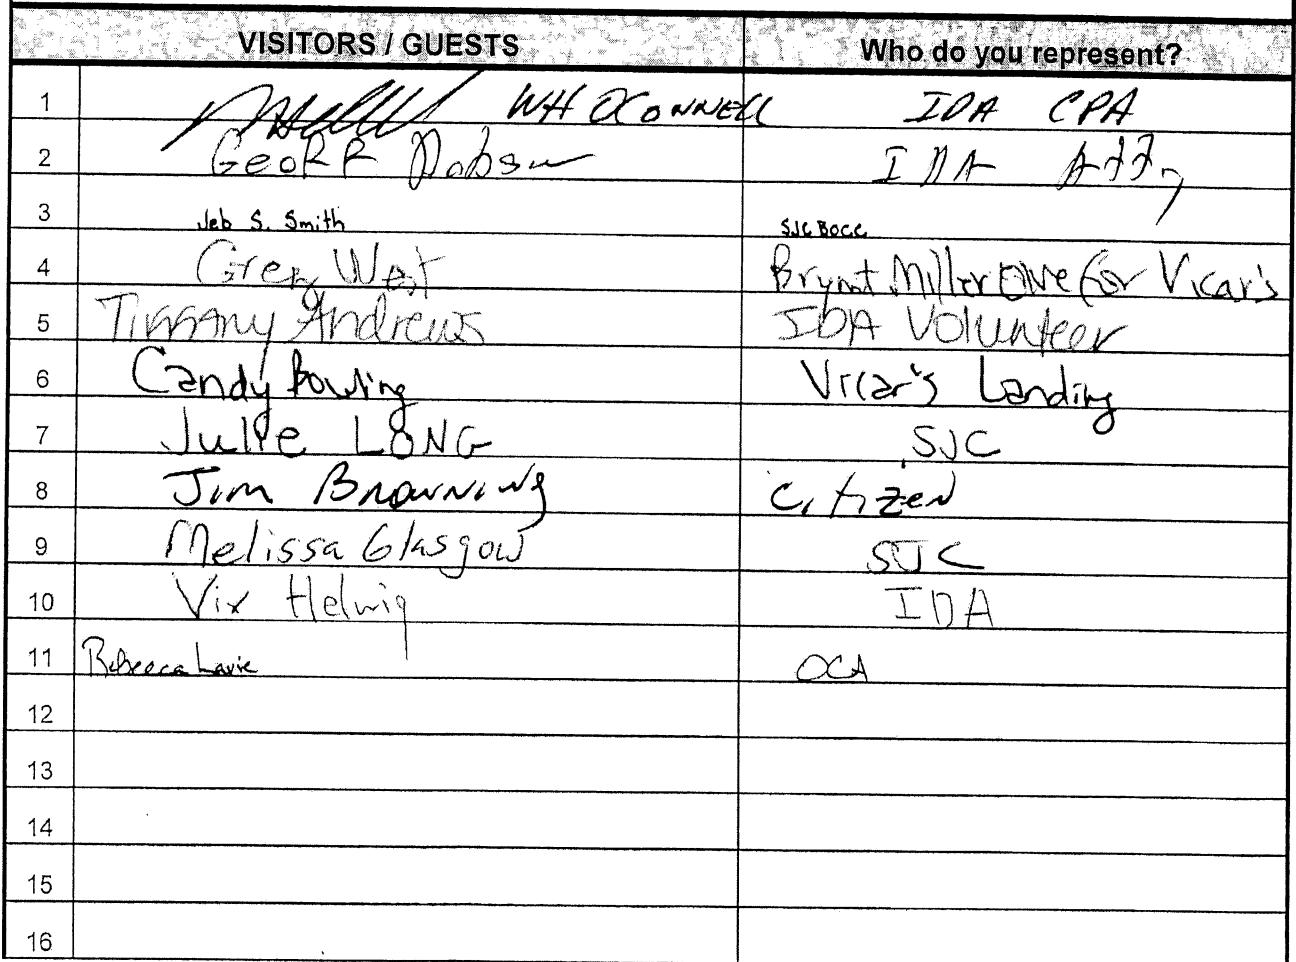 VISITORS / GUESTS Who do you represent?
1 WH OCONNELL IDA CPA
2 Geoff Dobson IDA Atty
3 Jeb S. Smith SJC BOCC
4 Greg West Bryant Miller Olive for Vicar's
5 Tiffany Andrews IDA Volunteer
6 Candy Bowling Vicar's Landing
7 Julie LONG SJC
8 Jim Browning Citizen
9 Melissa Glasgow SJC
10 Vix Helwig IDA
11 Rebecca Lavie OCA
12
13
14
15
16